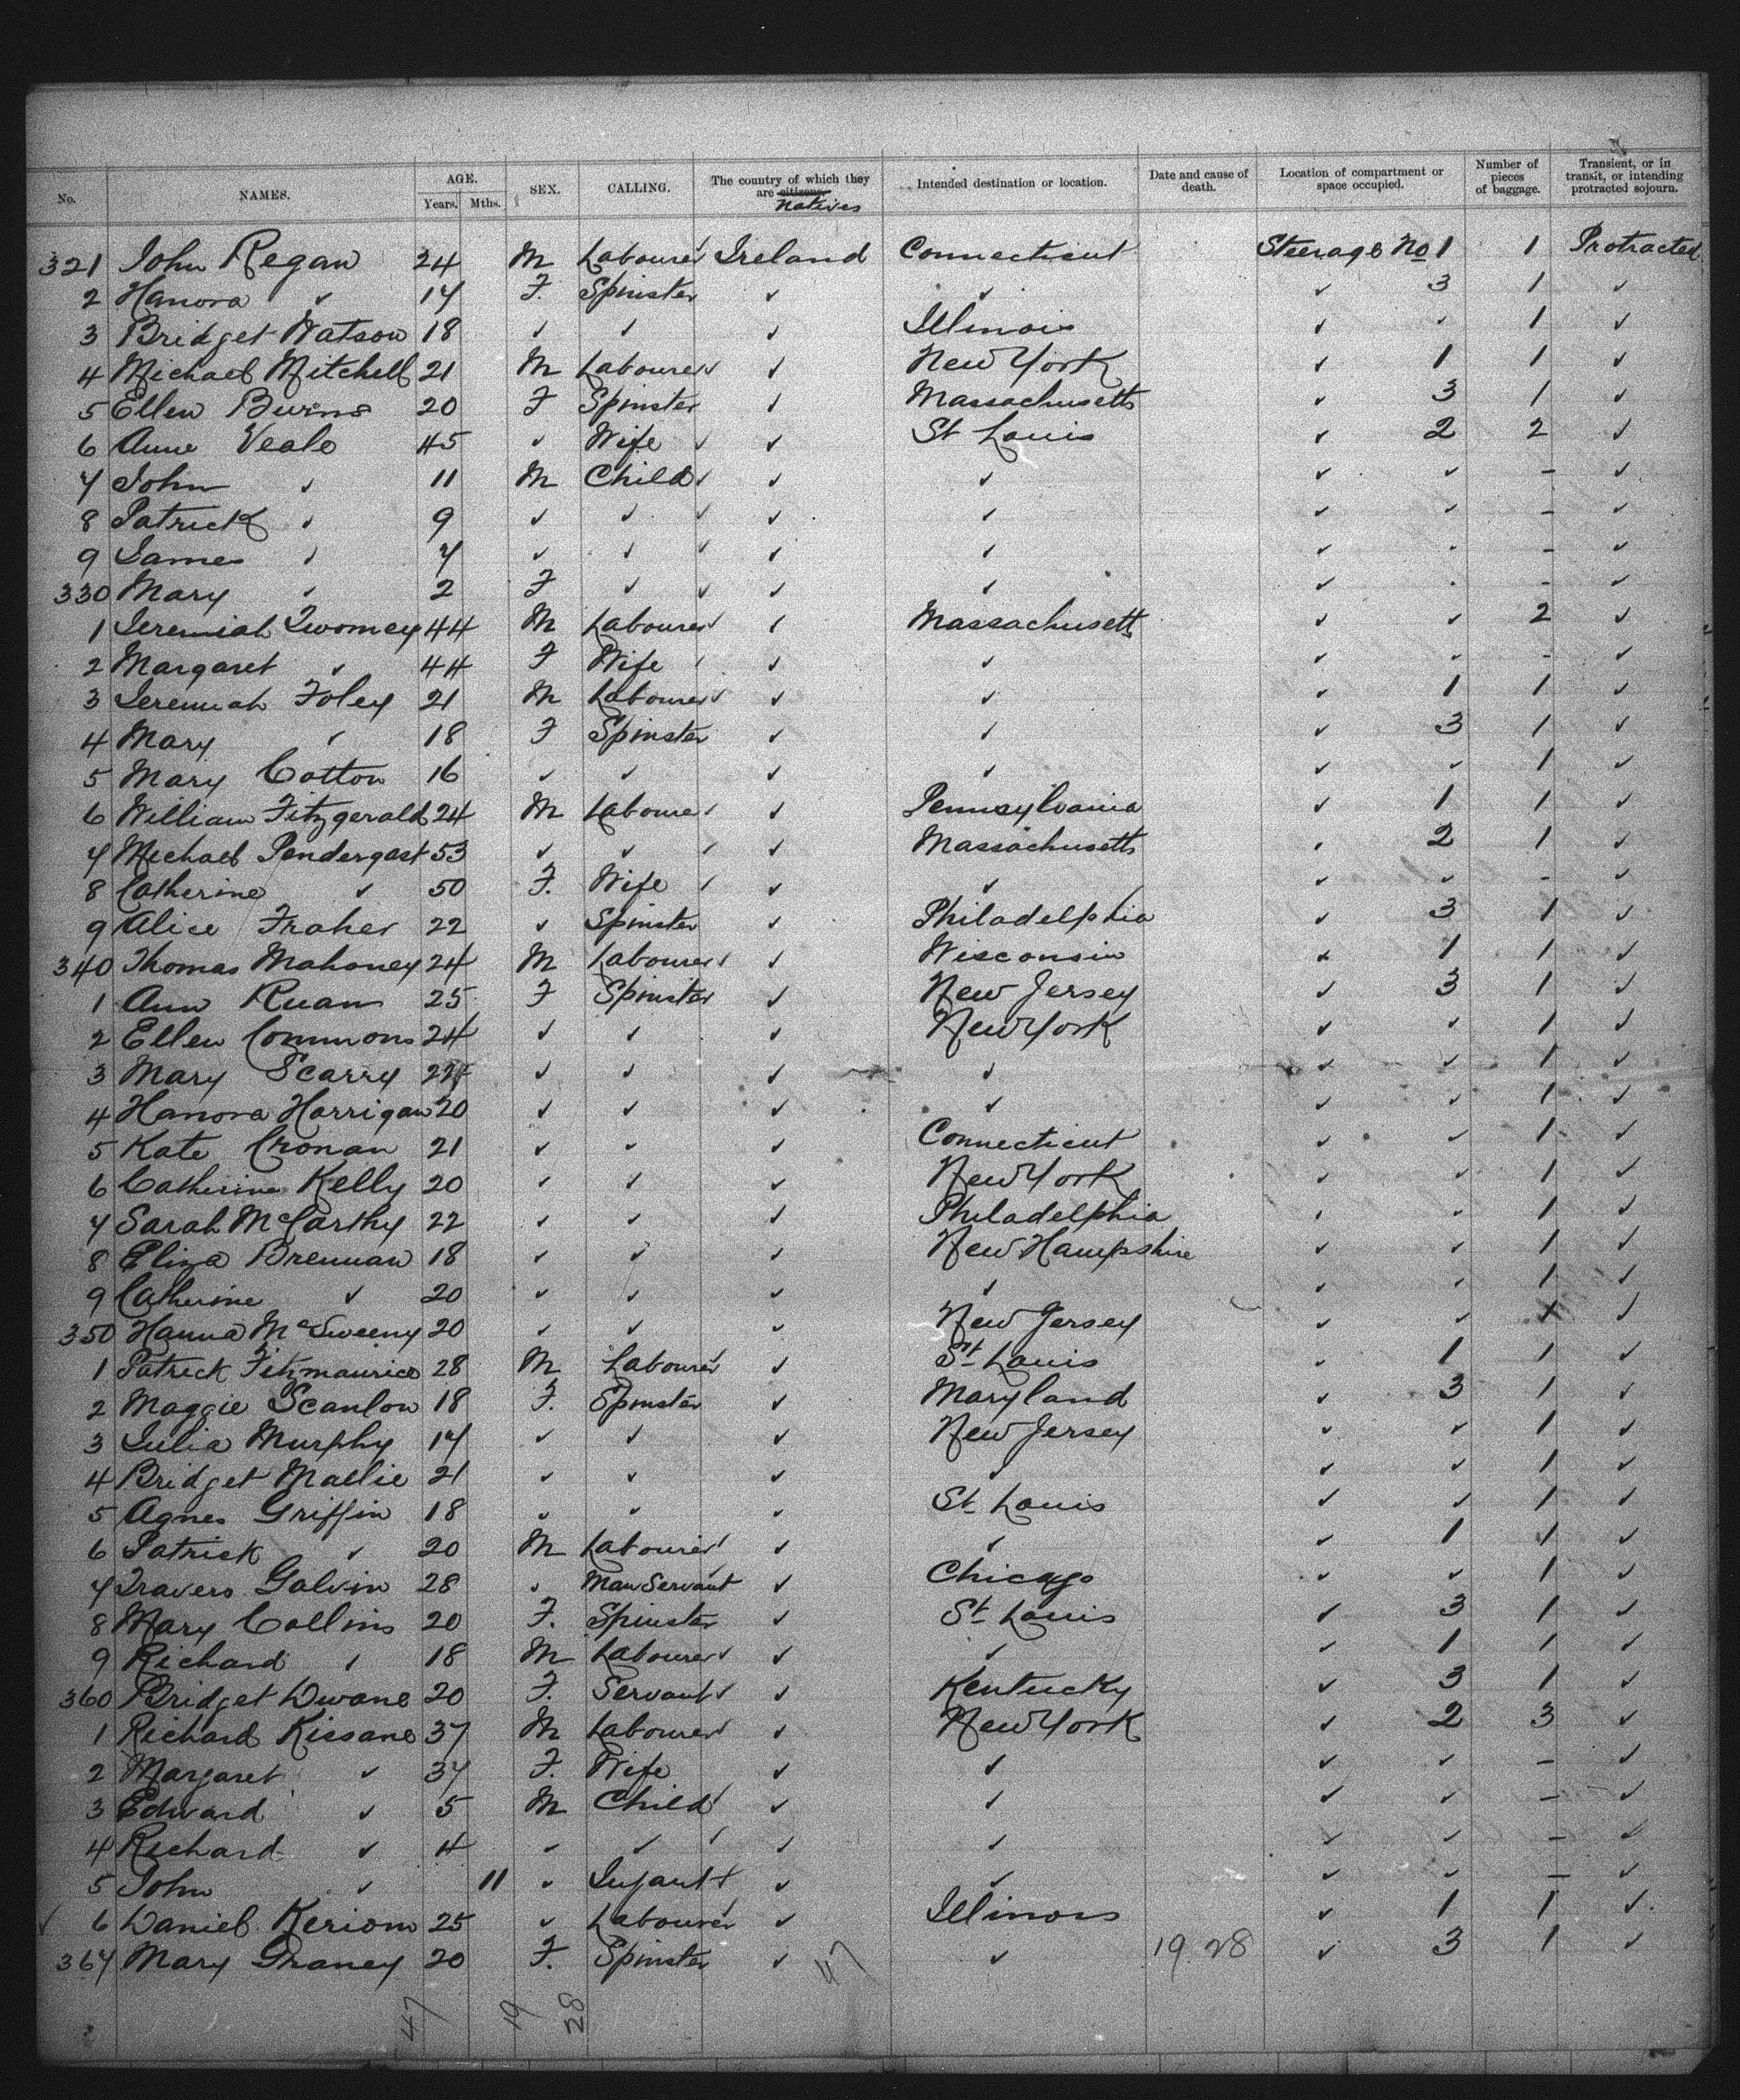 No. NAMES. AGE. Years. Mths. SEX. CALLING. The country of which they are citizens Natives Intended destination or location. Date and cause of death. Location of compartment or space occupied. Number of pieces of baggage. Transient, or in transit, or intending protracted sojourn.
321 John Regan 24 M Labourer Ireland Connecticut Steerage No 1 1 Protracted
2 Hanora ✓ 17 F. Spinster ✓ ✓ ✓ 3 1 ✓
3 Bridget Watson 18 ✓ ✓ ✓ Illinois ✓ ✓ 1 ✓
4 Michael Mitchell 21 M Labourer ✓ New York ✓ 1 1 ✓
5 Ellen Burns 20 F Spinster ✓ Massachusetts ✓ 3 1 ✓
6 Anne Veale 45 ✓ Wife ✓ ✓ St Louis ✓ 2 2 ✓
7 John ✓ 11 M Child ✓ ✓ ✓ ✓ ✓ - ✓
8 Patrick ✓ 9 ✓ ✓ ✓ ✓ ✓ ✓ ✓ - ✓
9 James ✓ 7 ✓ ✓ ✓ ✓ ✓ ✓ ✓ - ✓
330 Mary ✓ 2 F ✓ ✓ ✓ ✓ ✓ ✓ - ✓
1 Jeremiah Twomey 44 M Labourer ✓ Massachusetts ✓ ✓ 2 ✓
2 Margaret ✓ 44 F Wife ✓ ✓ ✓ ✓ ✓ - ✓
3 Jeremiah Foley 21 M Labourer ✓ ✓ ✓ 1 1 ✓
4 Mary ✓ 18 F Spinster ✓ ✓ ✓ 3 1 ✓
5 Mary Cotton 16 ✓ ✓ ✓ ✓ ✓ ✓ 1 ✓
6 William Fitzgerald 24 M Labourer ✓ Pennsylvania ✓ 1 1 ✓
7 Michael Pendergast 53 ✓ ✓ ✓ ✓ Massachusetts ✓ 2 1 ✓
8 Catherine ✓ 50 F. Wife ✓ ✓ ✓ ✓ ✓ - ✓
9 Alice Fraher 22 ✓ Spinster ✓ Philadelphia ✓ 3 1 ✓
340 Thomas Mahoney 24 M Labourer ✓ Wisconsin ✓ 1 1 ✓
1 Ann Ruan 25 F Spinster ✓ New Jersey ✓ 3 1 ✓
2 Ellen Commons 24 ✓ ✓ ✓ New York ✓ ✓ 1 ✓
3 Mary Scarry ✓ ✓ ✓ ✓ ✓ ✓ 1 ✓
4 Hanora Horrigan 20 ✓ ✓ ✓ ✓ ✓ ✓ 1 ✓
5 Kate Cronan 21 ✓ ✓ ✓ Connecticut ✓ ✓ 1 ✓
6 Catherine Kelly 20 ✓ ✓ ✓ New York ✓ ✓ 1 ✓
7 Sarah McCarthy 22 ✓ ✓ ✓ Philadelphia ✓ ✓ 1 ✓
8 Eliza Brennan 18 ✓ ✓ ✓ New Hampshire ✓ ✓ 1 ✓
9 Catherine ✓ 20 ✓ ✓ ✓ ✓ ✓ ✓ 1 ✓
350 Hanna McSweeny 20 ✓ ✓ ✓ New Jersey ✓ ✓ 1 ✓
1 Patrick Fitzmaurice 28 M Labourer ✓ St Louis ✓ 1 1 ✓
2 Maggie Scanlon 18 F. Spinster ✓ Maryland ✓ 3 1 ✓
3 Julia Murphy 17 ✓ ✓ ✓ New Jersey ✓ ✓ 1 ✓
4 Bridget Mallie 21 ✓ ✓ ✓ ✓ ✓ ✓ 1 ✓
5 Agnes Griffin 18 ✓ ✓ ✓ St Louis ✓ ✓ 1 ✓
6 Patrick ✓ 20 M Labourer ✓ ✓ ✓ 1 1 ✓
7 Travers Galvin 28 ✓ Man Servant ✓ Chicago ✓ ✓ 1 ✓
8 Mary Collins 20 F. Spinster ✓ St Louis ✓ 3 1 ✓
9 Richard ✓ 18 M Labourer ✓ ✓ ✓ 1 1 ✓
360 Bridget Dwane 20 F. Servant ✓ ✓ Kentucky ✓ 3 1 ✓
1 Richard Kissane 37 M Labourer ✓ New York ✓ 2 3 ✓
2 Margaret ✓ 37 F. Wife ✓ ✓ ✓ ✓ - ✓
3 Edward ✓ 5 M Child ✓ ✓ ✓ ✓ - ✓
4 Richard ✓ 4 ✓ ✓ ✓ ✓ ✓ ✓ ✓ - ✓
5 John ✓ 11 ✓ Infant ✓ ✓ ✓ ✓ - ✓
✓ 6 Daniel Keriom 25 ✓ Labourer ✓ Illinois ✓ 1 1 ✓
367 Mary Graney 20 F. Spinster ✓ 47 ✓ 19 28 ✓ 3 1 ✓
47 19 28